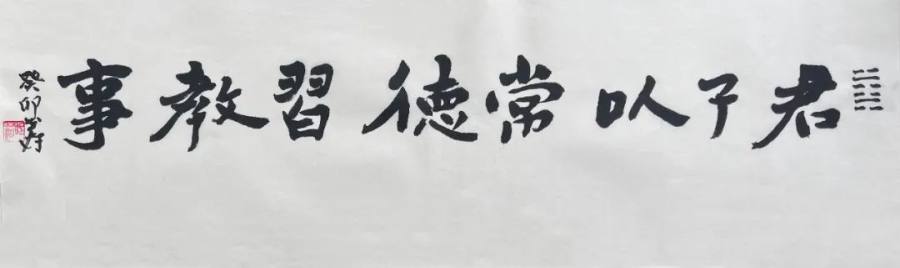 君子以常德習教事
癸卯